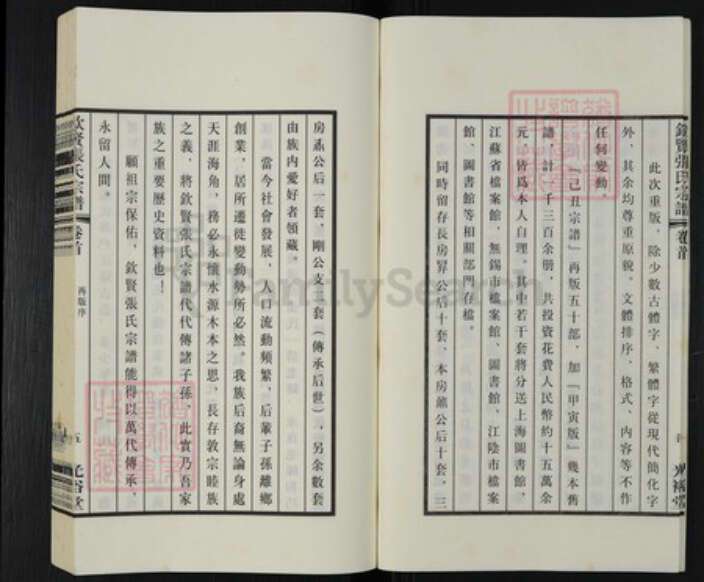 此次重版，除少數古體字、繁體字從現代簡化字
外，其余均尊重原貌。文體排序、格式、内容等不作
任何變動。
『己丑宗譜』再版五十部，加『甲寅版』幾本舊
譜，計一千三百余册，共投資花費人民幣約十五萬余
元，皆爲本人自理。其中若干套將分送上海圖書館，
江蘇省檔案館、無錫市檔案館、圖書館、江陰市檔案
館、圖書館等相關部門存檔。
同時留存長房昇公后十套、本房鯀公后十套，三
房鼒公后一套，剛公支一套（傳承后世），另余數套
由族内愛好者領藏。
當今社會發展，人口流動頻繁，后輩子孫離鄉
創業，居所遷徙變動勢所必然。我族后裔無論身處
天涯海角，務必永懷水源木本之恩，長存敦宗睦族
之義，將欽賢張氏宗譜代代傳諸子孫，此實乃吾家
族之重要歷史資料也！
顧祖宗保佑，欽賢張氏宗譜能得以萬代傳承，
永留人間。
欽賢張氏宗譜 卷首
再版序
五
光裕堂
FamilySearch